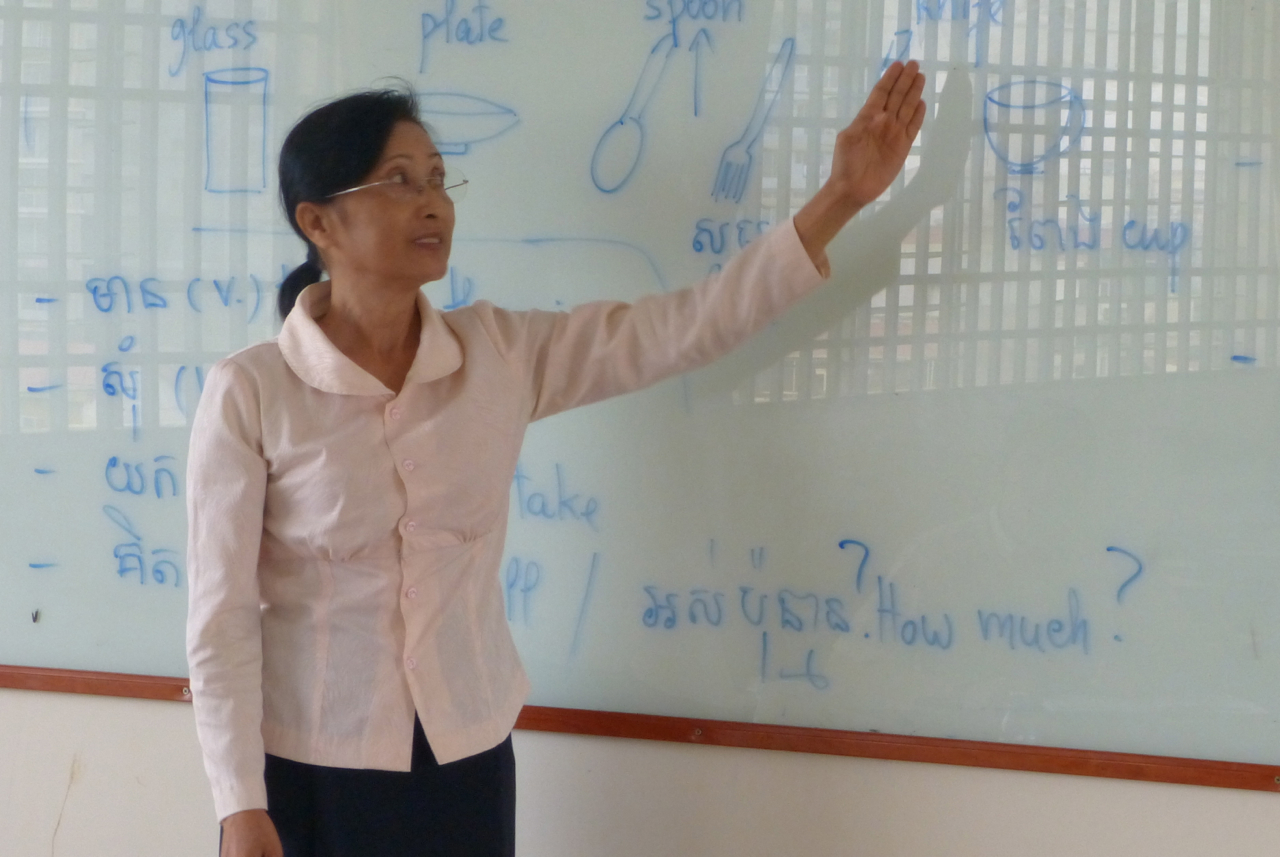 glass plate spoon knife
ពែង cup
- មាន (v.)
- សុំ (v
- យក take
- គិត
អស់ប៉ុន្មាន? How much?